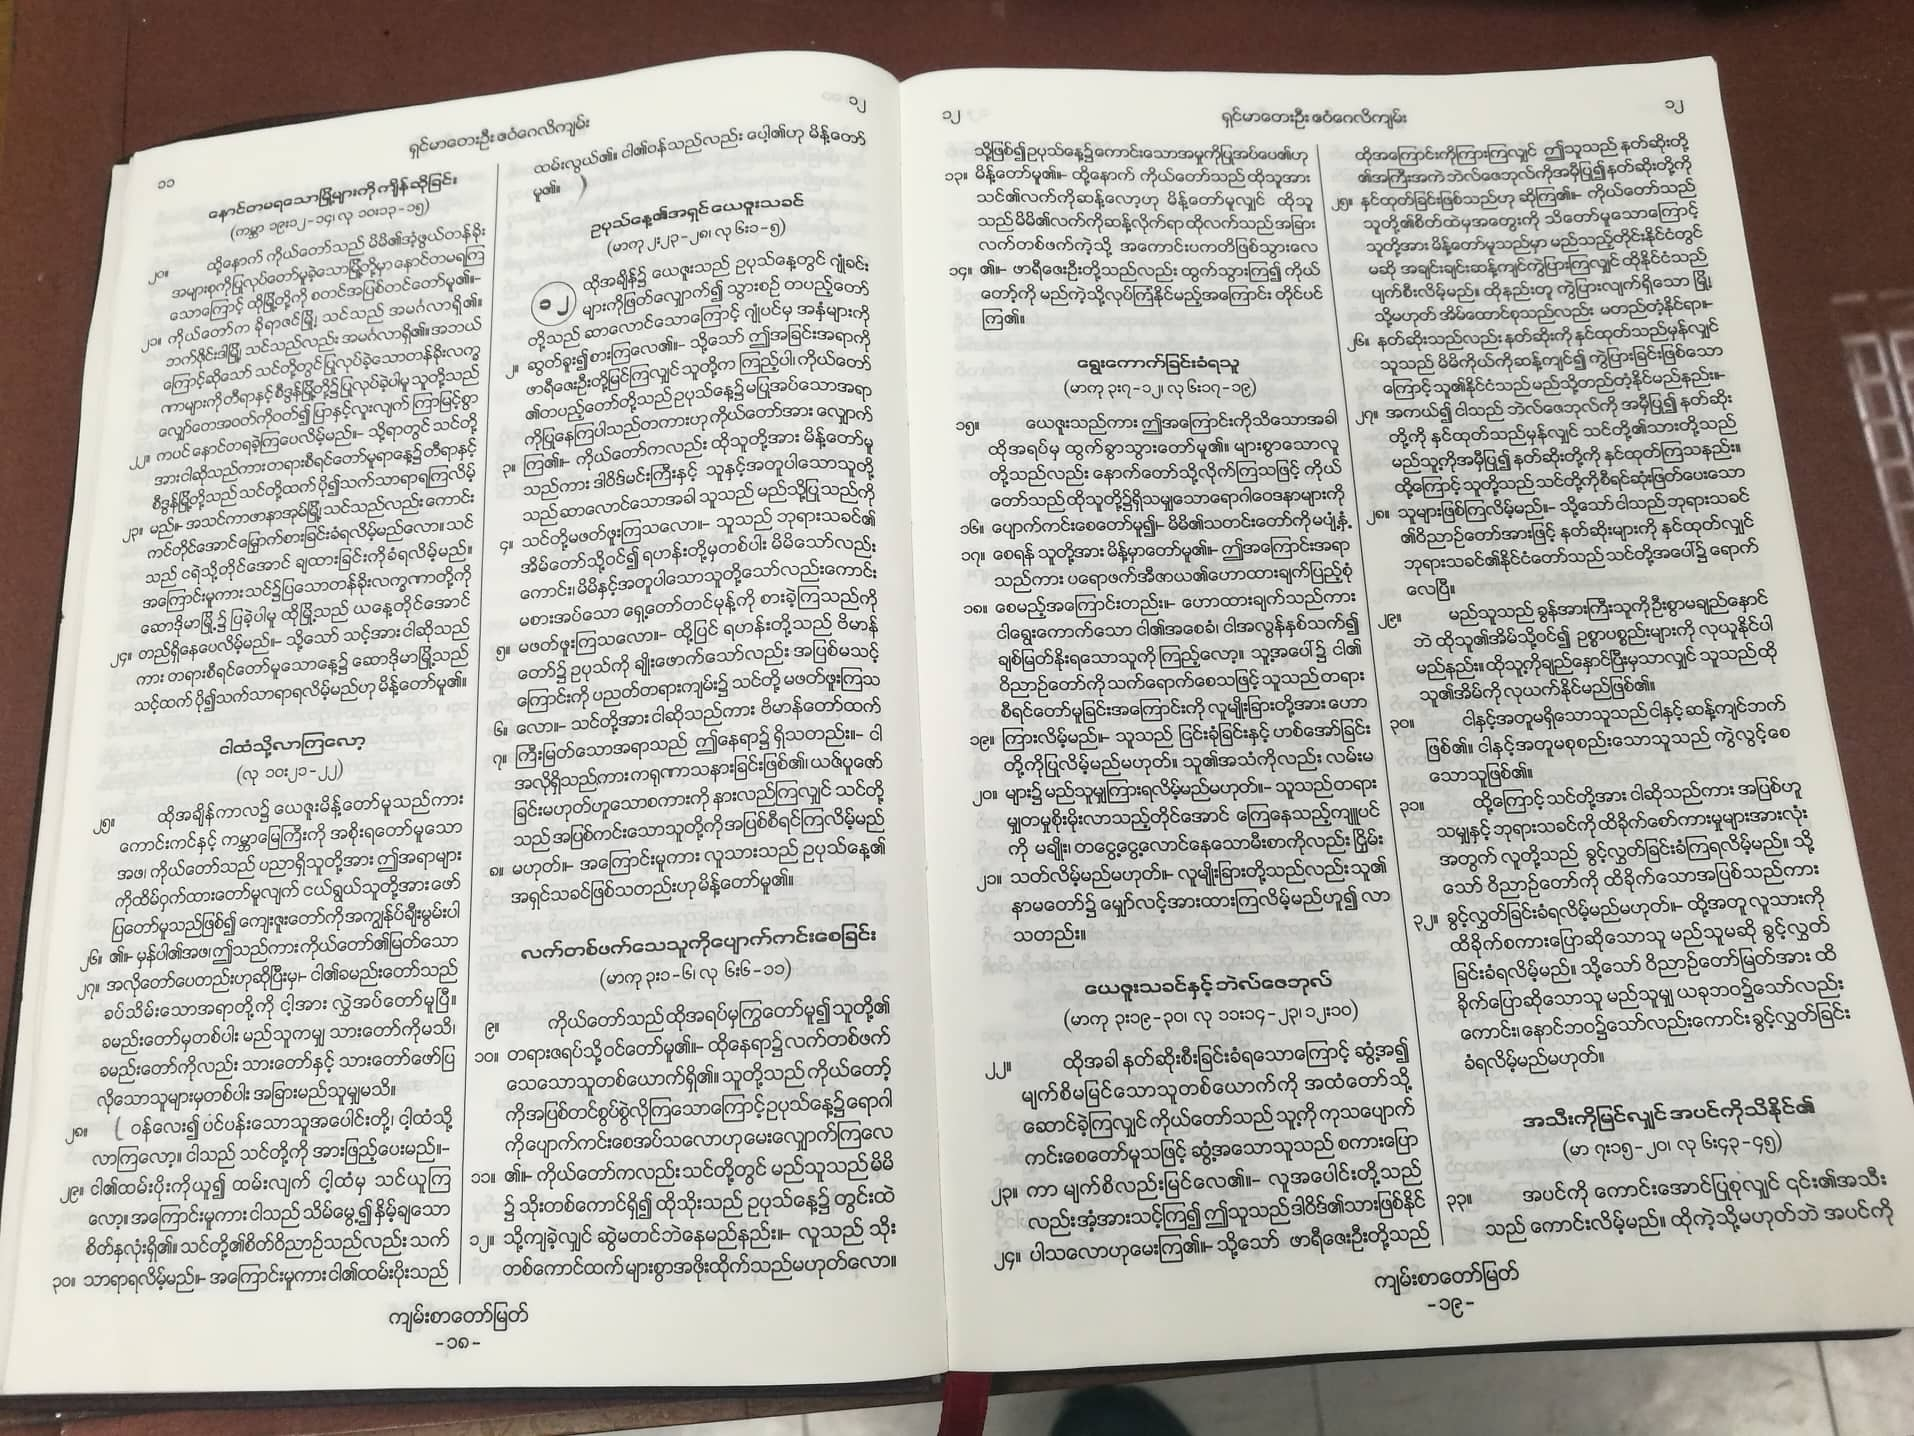 ၁၁
ရှင်မာတေးဦး ဧဝံဂေလိကျမ်း
၁၂
နောင်တမရသောမြို့များကို ကျိန်ဆိုခြင်း
(ကမ္ဘာ ၁၉း၁၂-၁၄၊ လု ၁၀း၁၃-၁၅)
၂၀။ ထို့နောက် ကိုယ်တော်သည် မိမိ၏အံ့ဖွယ်တန်ခိုး
အများစုကိုပြုလုပ်တော်မူခဲ့သောမြို့တို့မှာ နောင်တမရကြ
သောကြောင့် ထိုမြို့တို့ကို စတင်အပြစ်တင်တော်မူ၏။-
၂၁။ ကိုယ်တော်က ခိုရာဇင်မြို့၊ သင်သည် အမင်္ဂလာရှိ၏။
ဘက်ဇိုင်းဒါမြို့၊ သင်သည်လည်း အမင်္ဂလာရှိ၏။ အဘယ်
ကြောင့်ဆိုသော် သင်တို့တွင်ပြုလုပ်ခဲ့သောတန်ခိုးလက္ခ
ဏာများကို တီရာနှင့် စီဒွန်မြို့တို့၌ပြုလုပ်ခဲ့ပါမူ သူတို့သည်
လျှော်တေအဝတ်ကိုဝတ်၍ ပြာနှင့်လူးလျက် ကြာမြင့်စွာ
ကပင် နောင်တရခဲ့ကြပေလိမ့်မည်။-
၂၂။ သို့ရာတွင် သင်တို့
အား ငါဆိုသည်ကား တရားစီရင်တော်မူရာနေ့၌ တီရာနှင့်
စီဒွန်မြို့တို့သည် သင်တို့ထက် ပို၍သက်သာရာရကြလိမ့်
၂၃။ မည်။- အသင်ကာဖာနာအုမ်မြို့၊ သင်သည်လည်း ကောင်း
ကင်တိုင်အောင် မြှောက်စားခြင်းခံရလိမ့်မည်လော။ သင်
သည် ငရဲသို့တိုင်အောင် ချထားခြင်းကိုခံရလိမ့်မည်။
အကြောင်းမူကား သင်၌ပြသောတန်ခိုးလက္ခဏာတို့ကို
ဆောဒိုမာမြို့၌ ပြခဲ့ပါမူ ထိုမြို့သည် ယနေ့တိုင်အောင်
၂၄။ တည်ရှိနေပေလိမ့်မည်။- သို့သော် သင့်အား ငါဆိုသည်
ကား တရားစီရင်တော်မူသောနေ့၌ ဆောဒိုမာမြို့သည်
သင့်ထက် ပို၍သက်သာရာရလိမ့်မည်ဟု မိန့်တော်မူ၏။
ငါထံသို့လာကြလော့
(လု ၁၀း၂၁-၂၂)
၂၅။ ထိုအချိန်ကာလ၌ ယေဇူးမိန့်တော်မူသည်ကား
ကောင်းကင်နှင့် ကမ္ဘာမြေကြီးကို အစိုးရတော်မူသော
အဖ၊ ကိုယ်တော်သည် ပညာရှိသူတို့အား ဤအရာများ
ကိုထိမ်ဝှက်ထားတော်မူလျက် ငယ်ရွယ်သူတို့အား ဖော်
ပြတော်မူသည်ဖြစ်၍ ကျေးဇူးတော်ကို အကျွန်ုပ်ချီးမွမ်းပါ
၂၆။ ၏။- မှန်ပါ၏အဖ၊ ဤသည်ကား ကိုယ်တော်၏မြတ်သော
၂၇။ အလိုတော်ပေတည်းဟုဆိုပြီးမှ၊- ငါ၏ခမည်းတော်သည်
ခပ်သိမ်းသောအရာတို့ကို ငါ့အား လွှဲအပ်တော်မူပြီ။
ခမည်းတော်မှတစ်ပါး မည်သူကမျှ သားတော်ကိုမသိ၊
ခမည်းတော်ကိုလည်း သားတော်နှင့် သားတော်ဖော်ပြ
လိုသောသူများမှတစ်ပါး အခြားမည်သူမျှမသိ။
၂၈။ ( ဝန်လေး၍ ပင်ပန်းသောသူအပေါင်းတို့၊ ငါ့ထံသို့
လာကြလော့။ ငါသည် သင်တို့ကို အားဖြည့်ပေးမည်။-
၂၉။ ငါ၏ထမ်းပိုးကိုယူ၍ ထမ်းလျက် ငါ့ထံမှ သင်ယူကြ
လော့။ အကြောင်းမူကား ငါသည် သိမ်မွေ့၍ နိမ့်ချသော
စိတ်နှလုံးရှိ၏။ သင်တို့၏စိတ်ဝိညာဉ်သည်လည်း သက်
၃၀။ သာရာရလိမ့်မည်။- အကြောင်းမူကား ငါ၏ထမ်းပိုးသည်
ထမ်းလွယ်၏။ ငါ၏ဝန်သည်လည်း ပေါ့၏ဟု မိန့်တော်
မူ၏။ )
ဥပုသ်နေ့၏အရှင် ယေဇူးသခင်
(မာကု ၂း၂၃-၂၈၊ လု ၆း၁-၅)
၁၂ ထိုအချိန်၌ ယေဇူးသည် ဥပုသ်နေ့တွင် ဂျုံခင်း
များကိုဖြတ်လျှောက်၍ သွားစဉ် တပည့်တော်
တို့သည် ဆာလောင်သောကြောင့် ဂျုံပင်မှ အနှံများကို
၂။ ဆွတ်ခူး၍စားကြလေ၏။- သို့သော် ဤအခြင်းအရာကို
ဖာရီဇေးဦးတို့မြင်ကြလျှင် သူတို့က ကြည့်ပါ၊ ကိုယ်တော်
၏တပည့်တော်တို့သည် ဥပုသ်နေ့၌ မပြုအပ်သောအရာ
ကိုပြုနေကြပါသည်တကားဟု ကိုယ်တော်အား လျှောက်
၃။ ကြ၏။- ကိုယ်တော်ကလည်း ထိုသူတို့အား မိန့်တော်မူ
သည်ကား ဒါဝိဒ်မင်းကြီးနှင့် သူနှင့်အတူပါသောသူတို့
သည် ဆာလောင်သောအခါ သူသည် မည်သို့ပြုသည်ကို
၄။ သင်တို့မဖတ်ဖူးကြသလော။- သူသည် ဘုရားသခင်၏
အိမ်တော်သို့ဝင်၍ ရဟန်းတို့မှတစ်ပါး မိမိသော်လည်း
ကောင်း၊ မိမိနှင့်အတူပါသောသူတို့သော်လည်းကောင်း
မစားအပ်သော ရှေ့တော်တင်မုန့်ကို စားခဲ့ကြသည်ကို
၅။ မဖတ်ဖူးကြသလော။- ထို့ပြင် ရဟန်းတို့သည် ဗိမာန်
တော်၌ ဥပုသ်ကို ချိုးဖောက်သော်လည်း အပြစ်မသင့်
ကြောင်းကို ပညတ်တရားကျမ်း၌ သင်တို့ မဖတ်ဖူးကြသ
၆။ လော။- သင်တို့အား ငါဆိုသည်ကား ဗိမာန်တော်ထက်
၇။ ကြီးမြတ်သောအရာသည် ဤနေရာ၌ ရှိသတည်း။- ငါ
အလိုရှိသည်ကား ကရုဏာသနားခြင်းဖြစ်၏၊ ယဇ်ပူဇော်
ခြင်းမဟုတ်ဟူသောစကားကို နားလည်ကြလျှင် သင်တို့
သည် အပြစ်ကင်းသောသူတို့ကို အပြစ်စီရင်ကြလိမ့်မည်
၈။ မဟုတ်။- အကြောင်းမူကား လူသားသည် ဥပုသ်နေ့၏
အရှင်သခင်ဖြစ်သတည်းဟု မိန့်တော်မူ၏။
လက်တစ်ဖက်သေသူကိုပျောက်ကင်းစေခြင်း
(မာကု ၃း၁-၆၊ လု ၆း၆-၁၁)
၉။ ကိုယ်တော်သည် ထိုအရပ်မှကြွတော်မူ၍ သူတို့၏
၁၀။ တရားဇရပ်သို့ဝင်တော်မူ၏။- ထိုနေရာ၌ လက်တစ်ဖက်
သေသောသူတစ်ယောက်ရှိ၏။ သူတို့သည် ကိုယ်တော့်
ကိုအပြစ်တင်စွပ်စွဲလိုကြသောကြောင့် ဥပုသ်နေ့၌ရောဂါ
ကိုပျောက်ကင်းစေအပ်သလောဟု မေးလျှောက်ကြလေ
၁၁။ ၏။- ကိုယ်တော်ကလည်း သင်တို့တွင် မည်သူသည် မိမိ
၌ သိုးတစ်ကောင်ရှိ၍ ထိုသိုးသည် ဥပုသ်နေ့၌ တွင်းထဲ
၁၂။ သို့ကျခဲ့လျှင် ဆွဲမတင်ဘဲနေမည်နည်း။- လူသည် သိုး
တစ်ကောင်ထက် များစွာအဖိုးထိုက်သည်မဟုတ်လော။
ကျမ်းစာတော်မြတ်
-၁၈-
၁၂
ရှင်မာတေးဦး ဧဝံဂေလိကျမ်း
၁၂
သို့ဖြစ်၍ ဥပုသ်နေ့၌ကောင်းသောအမှုကိုပြုအပ်ပေ၏ဟု
၁၃။ မိန့်တော်မူ၏။- ထို့နောက် ကိုယ်တော်သည် ထိုသူအား
သင်၏လက်ကိုဆန့်လော့ဟု မိန့်တော်မူလျှင် ထိုသူ
သည် မိမိ၏လက်ကိုဆန့်လိုက်ရာ ထိုလက်သည် အခြား
လက်တစ်ဖက်ကဲ့သို့ အကောင်းပကတိဖြစ်သွားလေ
၁၄။ ၏။- ဖာရီဇေးဦးတို့သည်လည်း ထွက်သွားကြ၍ ကိုယ်
တော့်ကို မည်ကဲ့သို့လုပ်ကြံနိုင်မည့်အကြောင်း တိုင်ပင်
ကြ၏။
ရွေးကောက်ခြင်းခံရသူ
(မာကု ၃း၇-၁၂၊ လု ၆း၁၇-၁၉)
၁၅။ ယေဇူးသည်ကား ဤအကြောင်းကိုသိသောအခါ
ထိုအရပ်မှ ထွက်ခွာသွားတော်မူ၏။ များစွာသောလူ
တို့သည်လည်း နောက်တော်သို့လိုက်ကြသဖြင့် ကိုယ်
တော်သည် ထိုသူတို့၌ရှိသမျှသောရောဂါဝေဒနာများကို
၁၆။ ပျောက်ကင်းစေတော်မူ၍၊- မိမိ၏သတင်းတော်ကိုမပျံ့နှံ့
၁၇။ စေရန် သူတို့အား မိန့်မှာတော်မူ၏။- ဤအကြောင်းအရာ
သည်ကား ပရောဖက်အီဇာယ၏ဟောထားချက်ပြည့်စုံ
၁၈။ စေမည့်အကြောင်းတည်း။- ဟောထားချက်သည်ကား
ငါရွေးကောက်သော ငါ၏အစေခံ၊ ငါအလွန်နှစ်သက်၍
ချစ်မြတ်နိုးရသောသူကို ကြည့်လော့။ သူ့အပေါ်၌ ငါ၏
ဝိညာဉ်တော်ကို သက်ရောက်စေသဖြင့် သူသည် တရား
စီရင်တော်မူခြင်းအကြောင်းကို လူမျိုးခြားတို့အား ဟော
၁၉။ ကြားလိမ့်မည်။- သူသည် ငြင်းခုံခြင်းနှင့် ဟစ်အော်ခြင်း
တို့ကိုပြုလိမ့်မည်မဟုတ်။ သူ၏အသံကိုလည်း လမ်းမ
၂၀။ များ၌ မည်သူမျှကြားရလိမ့်မည်မဟုတ်။- သူသည် တရား
မျှတမှုစိုးမိုးလာသည့်တိုင်အောင် ကြေနေသည့်ကျူပင်
ကို မချိုး၊ တငွေ့ငွေ့လောင်နေသောမီးစာကိုလည်း ငြှိမ်း
၂၁။ သတ်လိမ့်မည်မဟုတ်။- လူမျိုးခြားတို့သည်လည်း သူ၏
နာမတော်၌ မျှော်လင့်အားထားကြလိမ့်မည်ဟူ၍ လာ
သတည်း။
ယေဇူးသခင်နှင့် ဘဲလ်ဇေဘုလ်
(မာကု ၃း၁၉-၃၀၊ လု ၁၁း၁၄-၂၃၊ ၁၂း၁၀)
၂၂။ ထိုအခါ နတ်ဆိုးစီးခြင်းခံရသောကြောင့် ဆွံ့အ၍
မျက်စိမမြင်သောသူတစ်ယောက်ကို အထံတော်သို့
ဆောင်ခဲ့ကြလျှင် ကိုယ်တော်သည် သူ့ကို ကုသပျောက်
ကင်းစေတော်မူသဖြင့် ဆွံ့အသောသူသည် စကားပြော
၂၃။ ကာ မျက်စိလည်းမြင်လေ၏။- လူအပေါင်းတို့သည်
လည်းအံ့အားသင့်ကြ၍ ဤသူသည် ဒါဝိဒ်၏သားဖြစ်နိုင်
၂၄။ ပါသလောဟုမေးကြ၏။- သို့သော် ဖာရီဇေးဦးတို့သည်
ထိုအကြောင်းကိုကြားကြလျှင် ဤသူသည် နတ်ဆိုးတို့
၏အကြီးအကဲ ဘဲလ်ဇေဘုလ်ကိုအမှီပြု၍ နတ်ဆိုးတို့ကို
၂၅။ နှင်ထုတ်ခြင်းဖြစ်သည်ဟု ဆိုကြ၏။- ကိုယ်တော်သည်
သူတို့၏စိတ်ထဲမှအတွေးကို သိတော်မူသောကြောင့်
သူတို့အား မိန့်တော်မူသည်မှာ မည်သည့်တိုင်းနိုင်ငံတွင်
မဆို အချင်းချင်းဆန့်ကျင်ကွဲပြားကြလျှင် ထိုနိုင်ငံသည်
ပျက်စီးလိမ့်မည်။ ထိုနည်းတူ ကွဲပြားလျက်ရှိသော မြို့
သို့မဟုတ် အိမ်ထောင်စုသည်လည်း မတည်တံ့နိုင်ရာ။-
၂၆။ နတ်ဆိုးသည်လည်း နတ်ဆိုးကို နှင်ထုတ်သည်မှန်လျှင်
သူသည် မိမိကိုယ်ကိုဆန့်ကျင်၍ ကွဲပြားခြင်းဖြစ်သော
ကြောင့် သူ၏နိုင်ငံသည် မည်သို့တည်တံ့နိုင်မည်နည်း။-
၂၇။ အကယ်၍ ငါသည် ဘဲလ်ဇေဘုလ်ကို အမှီပြု၍ နတ်ဆိုး
တို့ကို နှင်ထုတ်သည်မှန်လျှင် သင်တို့၏သားတို့သည်
မည်သူ့ကိုအမှီပြု၍ နတ်ဆိုးတို့ကို နှင်ထုတ်ကြသနည်း။
ထို့ကြောင့် သူတို့သည် သင်တို့ကိုစီရင်ဆုံးဖြတ်ပေးသော
၂၈။ သူများဖြစ်ကြလိမ့်မည်။- သို့သော် ငါသည် ဘုရားသခင်
၏ဝိညာဉ်တော်အားဖြင့် နတ်ဆိုးများကို နှင်ထုတ်လျှင်
ဘုရားသခင်၏နိုင်ငံတော်သည် သင်တို့အပေါ်၌ ရောက်
လေပြီ။
၂၉။ မည်သူသည် ခွန်အားကြီးသူကိုဦးစွာမချည်နှောင်
ဘဲ ထိုသူ၏အိမ်သို့ဝင်၍ ဥစ္စာပစ္စည်းများကို လုယူနိုင်ပါ
မည်နည်း။ ထိုသူ့ကိုချည်နှောင်ပြီးမှသာလျှင် သူသည် ထို
သူ၏အိမ်ကို လုယက်နိုင်မည်ဖြစ်၏။
၃၀။ ငါနှင့်အတူမရှိသောသူသည် ငါနှင့် ဆန့်ကျင်ဘက်
ဖြစ်၏။ ငါနှင့်အတူမစုစည်းသောသူသည် ကွဲလွင့်စေ
သောသူဖြစ်၏။
၃၁။ ထို့ကြောင့် သင်တို့အား ငါဆိုသည်ကား အပြစ်ဟူ
သမျှနှင့် ဘုရားသခင်ကိုထိခိုက်စော်ကားမှုများအားလုံး
အတွက် လူတို့သည် ခွင့်လွှတ်ခြင်းခံကြရလိမ့်မည်။ သို့
သော် ဝိညာဉ်တော်ကို ထိခိုက်သောအပြစ်သည်ကား
၃၂။ ခွင့်လွှတ်ခြင်းခံရလိမ့်မည်မဟုတ်။- ထို့အတူ လူသားကို
ထိခိုက်စကားပြောဆိုသောသူ မည်သူမဆို ခွင့်လွှတ်
ခြင်းခံရလိမ့်မည်။ သို့သော် ဝိညာဉ်တော်မြတ်အား ထိ
ခိုက်ပြောဆိုသောသူ မည်သူမျှ ယခုဘဝ၌သော်လည်း
ကောင်း၊ နောင်ဘဝ၌သော်လည်းကောင်း ခွင့်လွှတ်ခြင်း
ခံရလိမ့်မည်မဟုတ်။
အသီးကိုမြင်လျှင် အပင်ကိုသိနိုင်၏
(မာ ၇း၁၅-၂၀၊ လု ၆း၄၃-၄၅)
၃၃။ အပင်ကို ကောင်းအောင်ပြုစုလျှင် ၎င်း၏အသီး
သည် ကောင်းလိမ့်မည်။ ထိုကဲ့သို့မဟုတ်ဘဲ အပင်ကို
ကျမ်းစာတော်မြတ်
-၁၉-